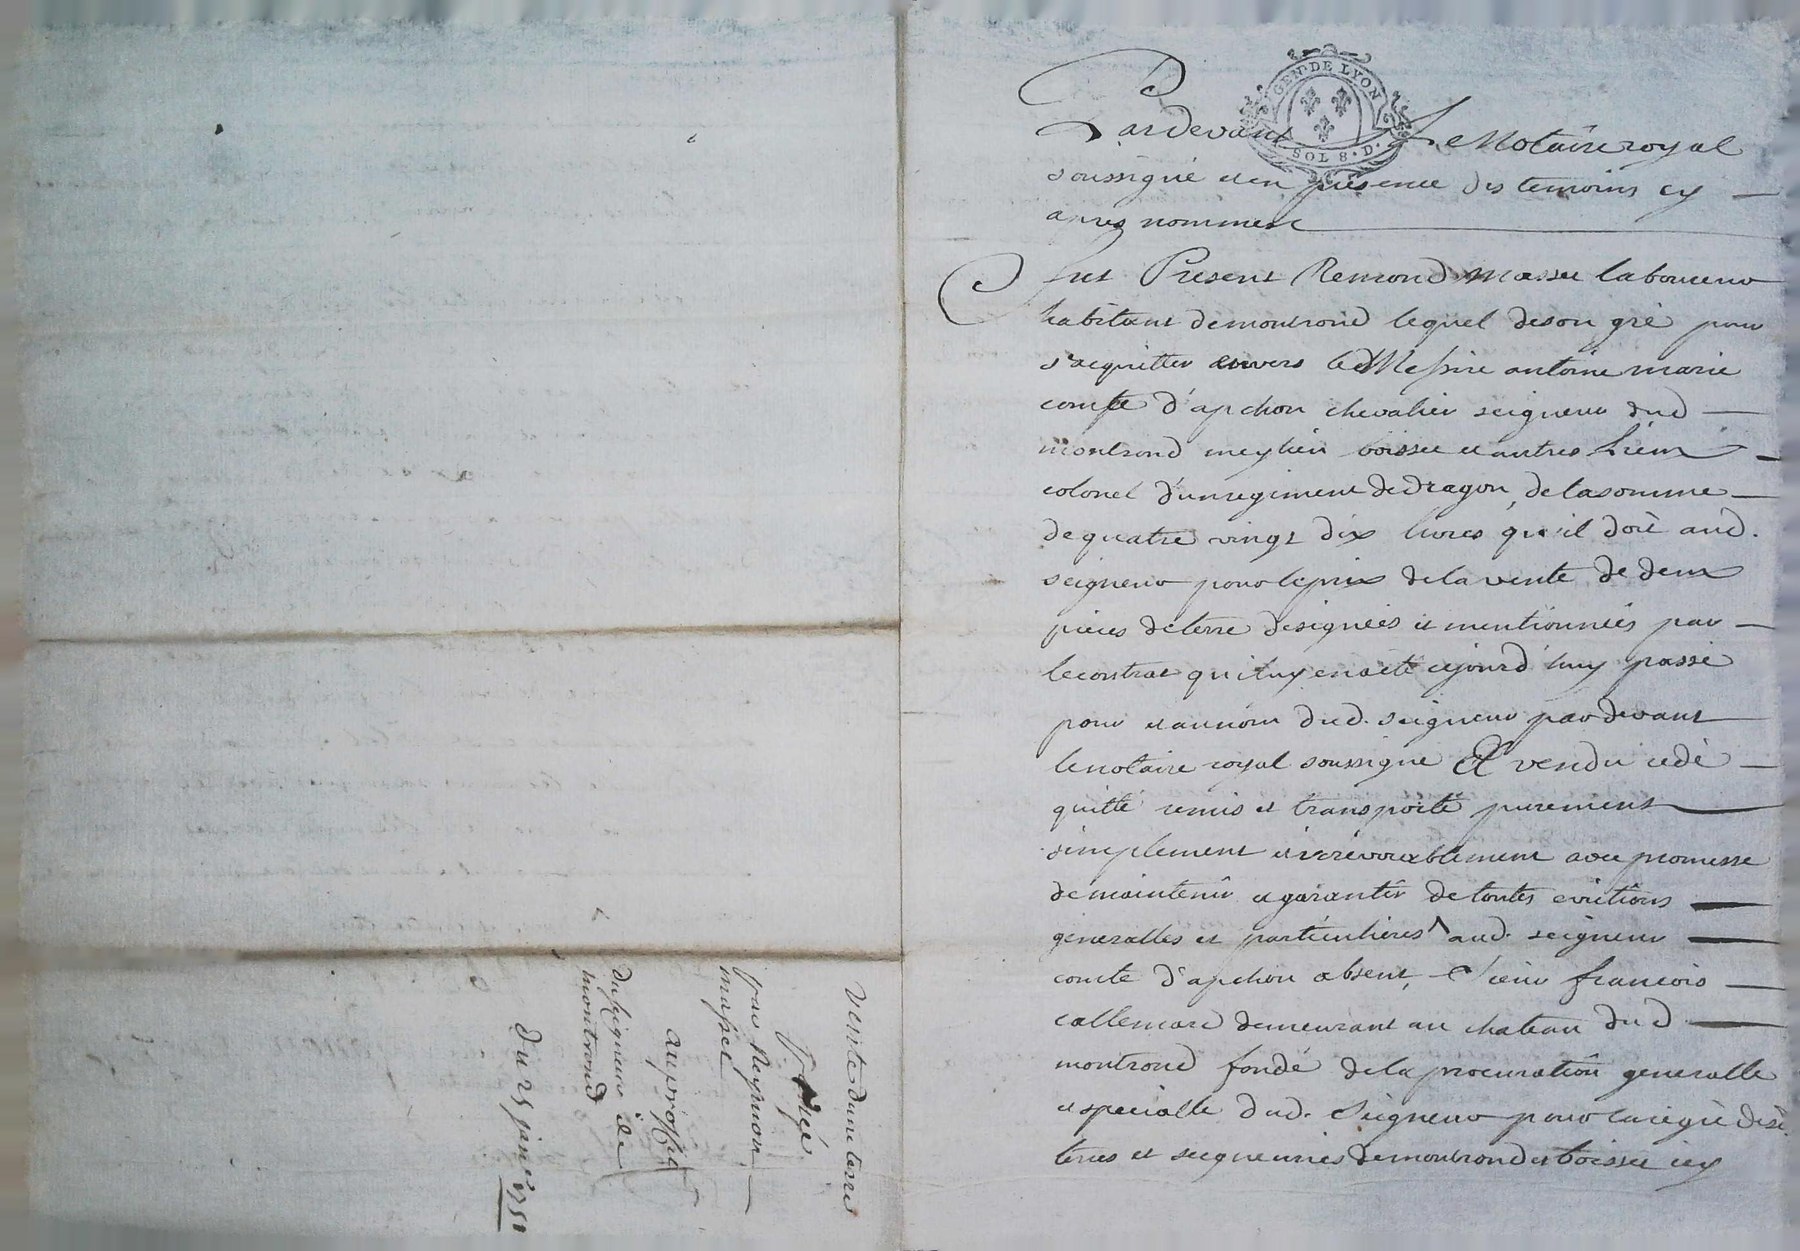 GEN. DE LYON
SOL 8. D.
Pardevant Le Notaire royal
soussigné et en présence des temoins cy
apres nommes
fut Present Remond massee laboureur
habitant demontrond lequel deson gré pour
s'acquitter envers led Messire antoine marie
comte d'apchon chevalier seigneur dud
montrond meylieu boisset et autres lieux
colonel d'un regiment de dragon, de la somme
de quatre vingt dix livres qu'il doit aud.
seigneur pour le prix de la vente de deux
pieces de terre designées et mentionnées par
le contrat qui luy en a eté cejourd'huy passé
pour et au nom dud. seigneur par devant
le notaire royal soussigné A vendu cedé
quitté remis et transporté purement
simplement et irrevocablement avec promesse
de maintenir et garantir de toutes evictions
generalles et particulieres aud. seigneur
comte d'apchon absent, Sieur francois
callemard demeurant au chateau dud
montrond fondé de la procuration generalle
et specialle dud. Seigneur pour la regie des
terres et seigneuries de montrond et boisset icy
vente dune terre
par Reymon
massee
au proffit
du seigneur de
montrond
du 25 janer 1751